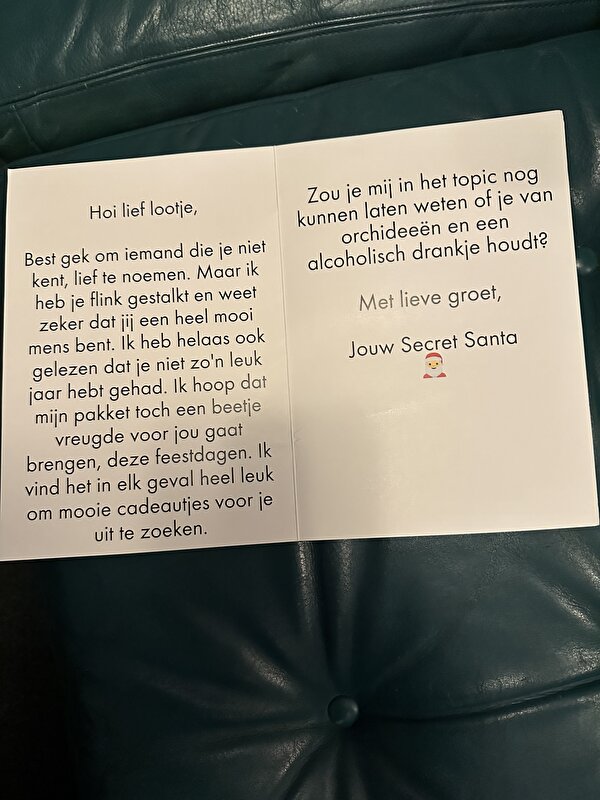 Hoi lief lootje,
Best gek om iemand die je niet
kent, lief te noemen. Maar ik
heb je flink gestalkt en weet
zeker dat jij een heel mooi
mens bent. Ik heb helaas ook
gelezen dat je niet zo'n leuk
jaar hebt gehad. Ik hoop dat
mijn pakket toch een beetje
vreugde voor jou gaat
brengen, deze feestdagen. Ik
vind het in elk geval heel leuk
om mooie cadeautjes voor je
uit te zoeken.
Zou je mij in het topic nog
kunnen laten weten of je van
orchideeën en een
alcoholisch drankje houdt?
Met lieve groet,
Jouw Secret Santa
🎅